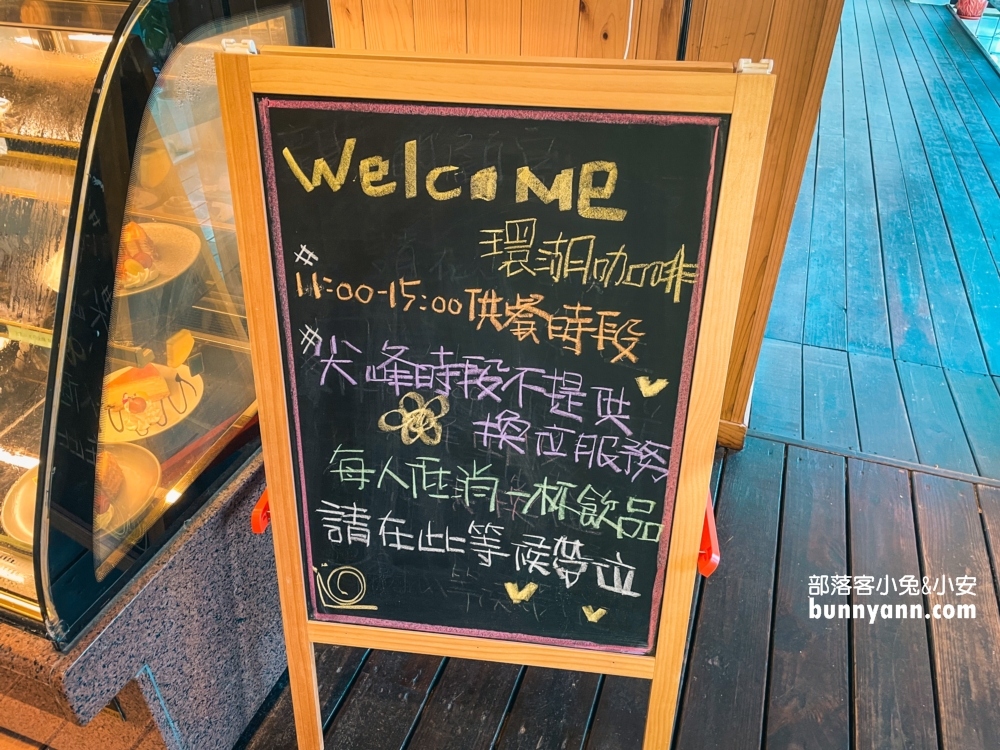 Welcome
環湖咖啡
#
11:00-15:00供餐時段
#
尖峰時段不提供
換位服務
每人低消一杯飲品
請在此等候帶位
部落客小兔&小安
bunnyann.com